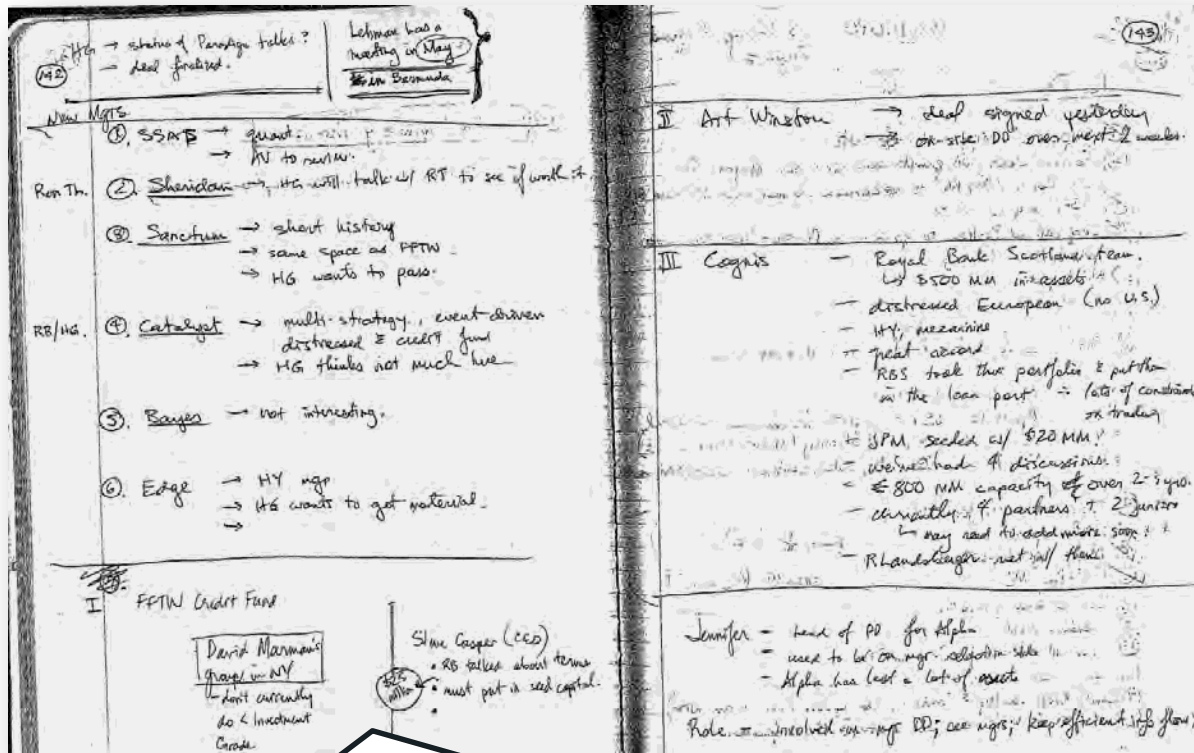 HG → status of Paradigm talks?
(142) → deal finalized.
Lehman has a
meeting in May
in Bermuda
New Mgrs
①. SSAB → quant.
→ AV to review.
Ron Th. ②. Sheridan → HG will talk w/ RT to see if worth it.
③ Sanctum → short history
→ same space as FFTW
→ HG wants to pass.
RB/HG. ④. Catalyst → multi-strategy, event driven
distressed & credit fund
→ HG thinks not much here
⑤. Bayes → not interesting.
⑥. Edge → HY mgr
→ HG wants to get material.
→
I FFTW Credit Fund
David Marman's
group in NY
- don't currently
do < Investment
Grade
Steve Casper (CEO)
• RB talked about terms
$25 million • must put in seed capital.
•
(143)
II Art Winston → deal signed yesterday
→ on-site DD over next 2 weeks.
III Cognis — Royal Bank Scotland team.
↳ $500 MM in assets
— distressed European (no U.S.)
— HY, mezzanine
— great record
— RBS took their portfolio & put them
in the loan port ÷ lots of constraints
on trading
JPM seeded w/ $20 MM.
— we've had 4 discussions.
€800 MM capacity over 2-3 yrs.
— currently 4 partners + 2 juniors
↳ may need to add more soon
— R Landsberger met w/ them.
Jennifer — head of PD for Alpha
— used to be on mgr selection side
— Alpha has lost a lot of assets
Role = involved on mgr DD; see mgrs; keep efficient info flow;